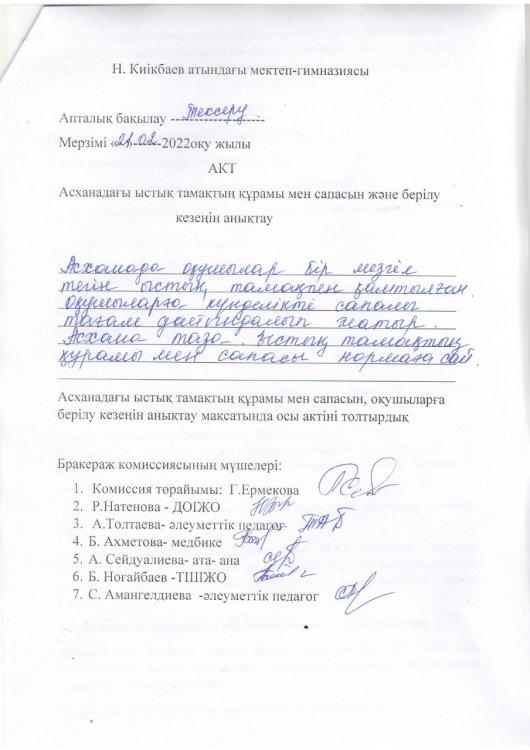 Н. Киікбаев атындағы мектеп-гимназиясы
Апталық бақылау ---Тексеру---
Мерзімі «21» 02 -2022оқу жылы
АКТ
Асханадағы ыстық тамақтың құрамы мен сапасын және берілу
кезеңін анықтау
Асханада оқушылар бір мезгіл
тегін ыстық тамақпен қамтылған
оқушыларға күнделікті сапалы
тағам дайындалып жатыр.
Асхана таза. Ыстық тамақтың
құрамы мен сапасы нормаға сай.
Асханадағы ыстық тамақтың құрамы мен сапасын, оқушыларға
берілу кезеңін анықтау мақсатында осы актіні толтырдық
Бракераж комиссиясының мүшелері:
1. Комиссия төрайымы: Г.Ермекова
2. Р.Натенова - ДОІЖО
3. А.Толтаева- әлеуметтік педагог
4. Б. Ахметова- медбике
5. А. Сейдуалиева- ата- ана
6. Б. Ноғайбаев -ТШІЖО
7. С. Амангелдиева -әлеуметтік педагог